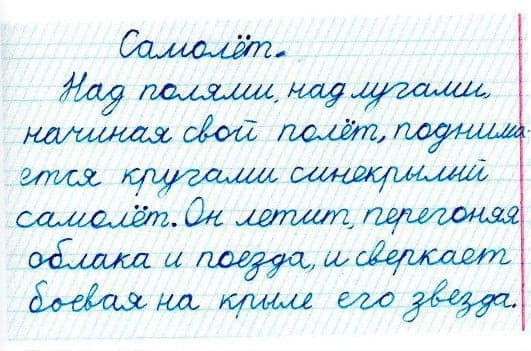 Самолёт.
Над полями, над лугами,
начиная свой полёт, поднима-
ется кругами синекрылый
самолёт. Он летит, перегоняя
облака и поезда, и сверкает
боевая на крыле его звезда.